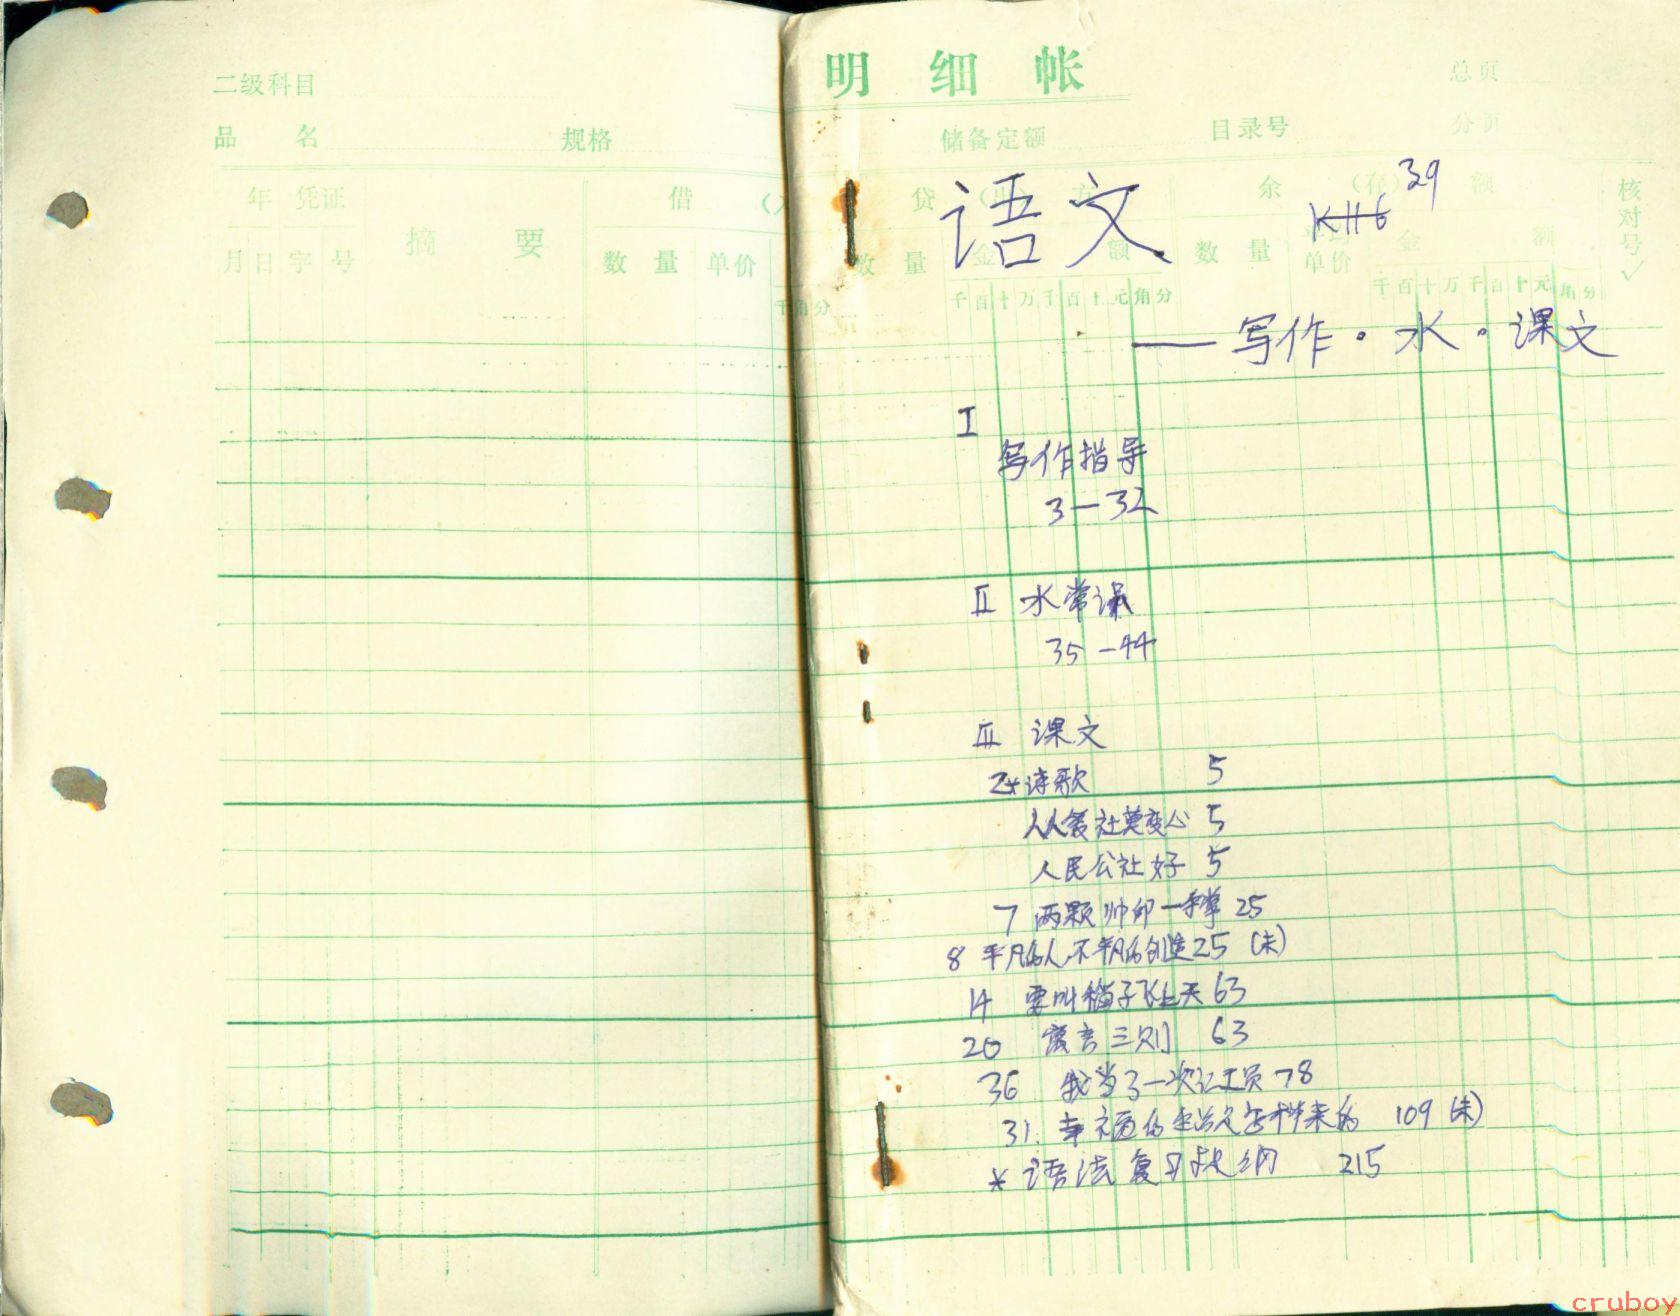 二级科目
品 名 规格
年 凭证 借
月 日 字 号 摘 要 数 量 单价
千 角 分
明 细 帐
总页
储备定额 目录号 分页
贷 方 余 (存) 额 核对号✓
数 量 金 额 数 量 平均单价 金 额
千百十万千百十元角分 千百十万千百十元角分
语文
KH6 39
——写作·水·课文
I
写作指导
3—32
II 水常识
35—44
III 课文
诗歌 5
人人爱社莫变心 5
人民公社好 5
7 两颗帅印一手掌 25
8 平凡的人不平凡的创造 25 (未)
14 要叫稻子飞上天 63
20 寓言三则 63
36 我当了一次记工员 78
31. 幸福的生活怎样来的 109 (未)
* 语法复习提纲 215
cruboy